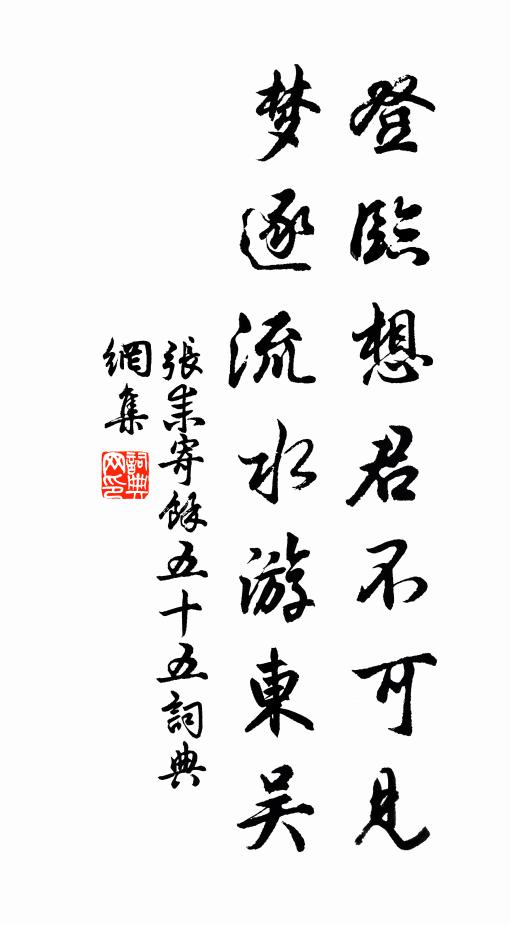 登臨想君不可見
梦逐流水游東吴
張耒寄餘五十五詞典
網集
詞典網印